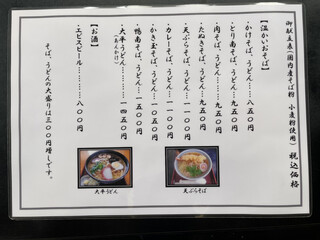 御献立表(国内産そば粉 小麦粉使用) 税込価格
【温かいおそば】
・かけそば、うどん……八五〇円
・とり南そば、うどん…九五〇円
・肉そば、うどん………九五〇円
・たぬきそば、うどん…九五〇円
・天ぷらそば、うどん…一一〇〇円
・カレーそば、うどん…一一〇〇円
・かき玉そば、うどん…一一〇〇円
・鴨南そば、うどん……一五〇〇円
・大平うどん……………一四五〇円
(あんかけ)
【お酒】
・ヱビスビール…………八〇〇円
そば、うどんの大盛りは三〇〇円増しです。
大平うどん
天ぷらそば